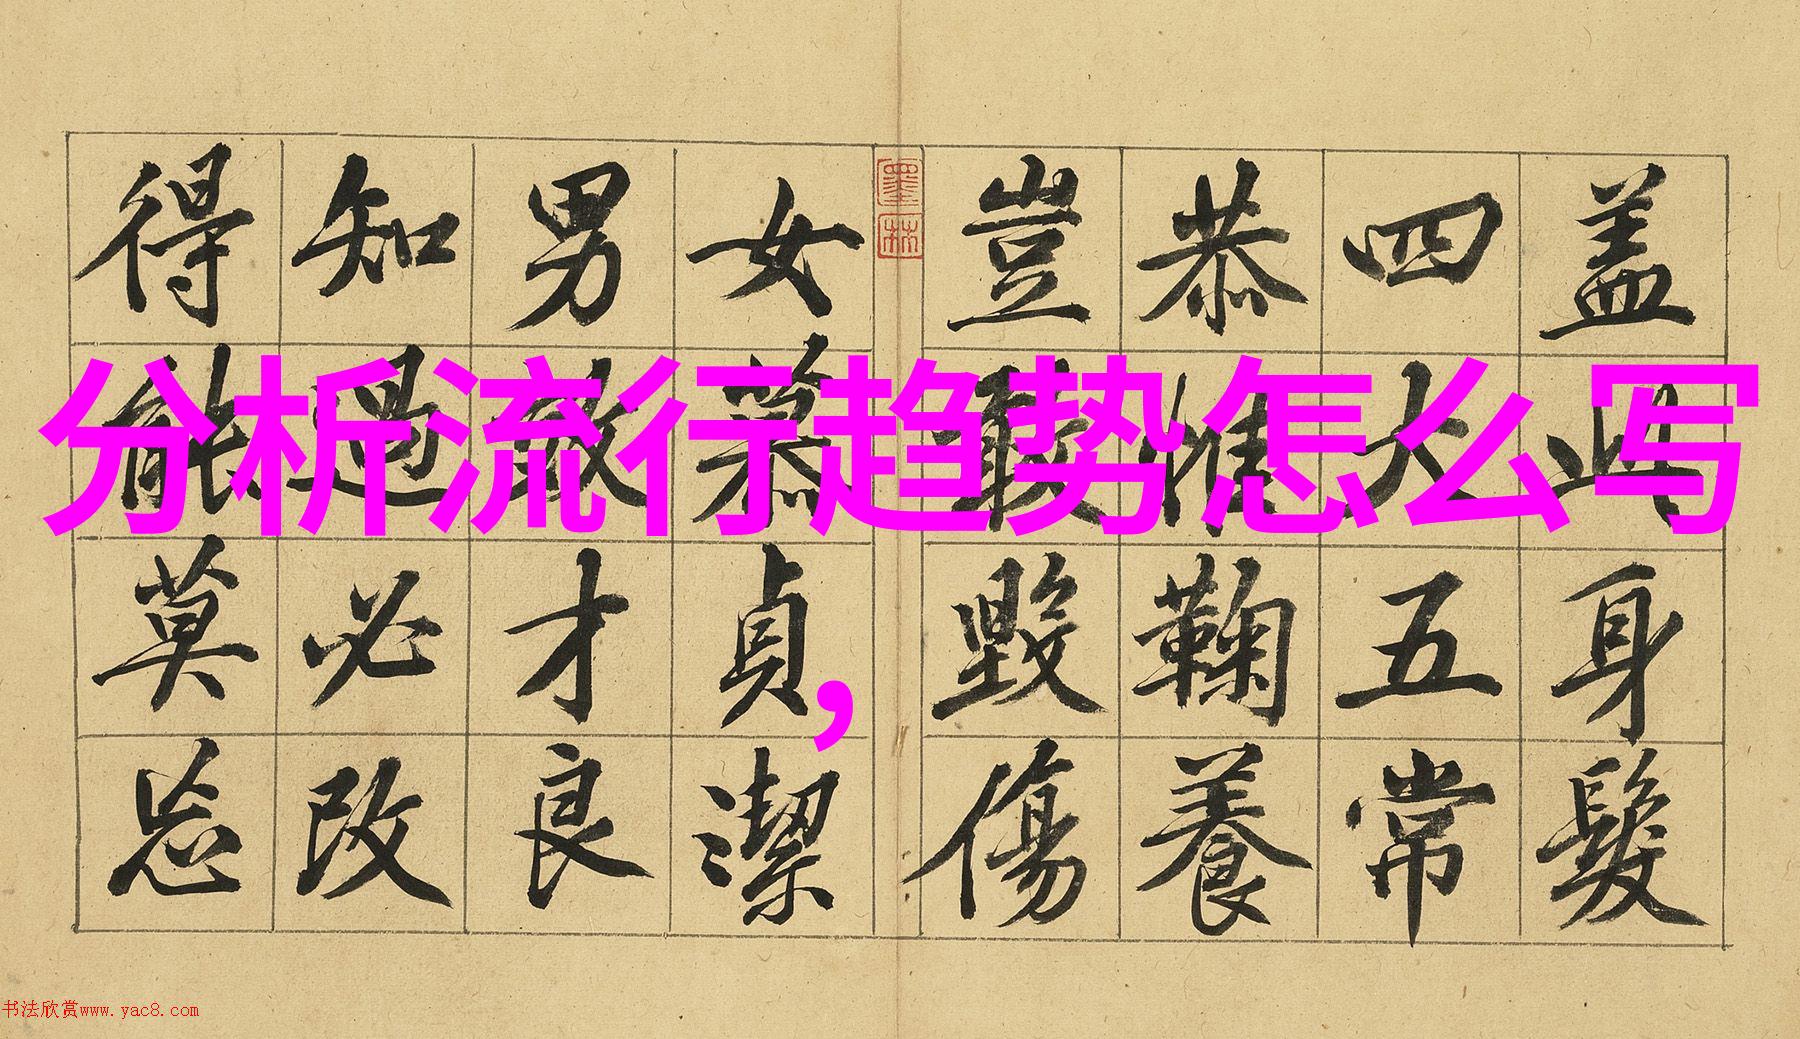 分析流行趋势怎么写
，
盖此身髮
四大五常
恭惟鞠養
豈敢毀傷
墨林
女慕貞潔
男效才良
知過必改
得能莫忘
书法欣赏www.yac8.com